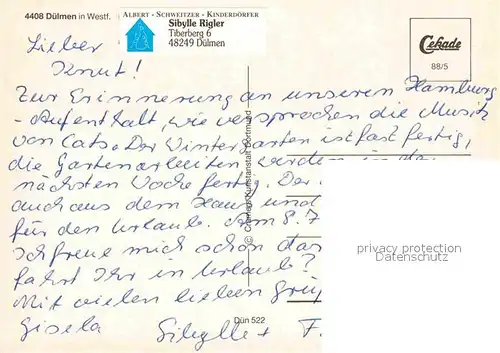 4408 Dülmen in Westf.
ALBERT - SCHWEITZER - KINDERDÖRFER
Sibylle Rigler
Tiberberg 6
48249 Dülmen
Cekade
88/5
Lieber
Knut!
Zur Erinnerung an unseren Hamburg
-Aufenthalt, wie versprochen die Musik
von Cats. Der Wintergarten ist fast fertig,
die Gartenarbeiten werden in der
nächsten Woche fertig. Der
auch aus dem Haus und
für den Urlaub. Am 8.7
Ich freue mich schon das
fahrt Ihr in Urlaub?
Mit vielen lieben Grüß
Gisela Sibylle + F.
© Cramers Kunstanstalt, Dortmund
Dün 522
privacy protection
Datenschutz